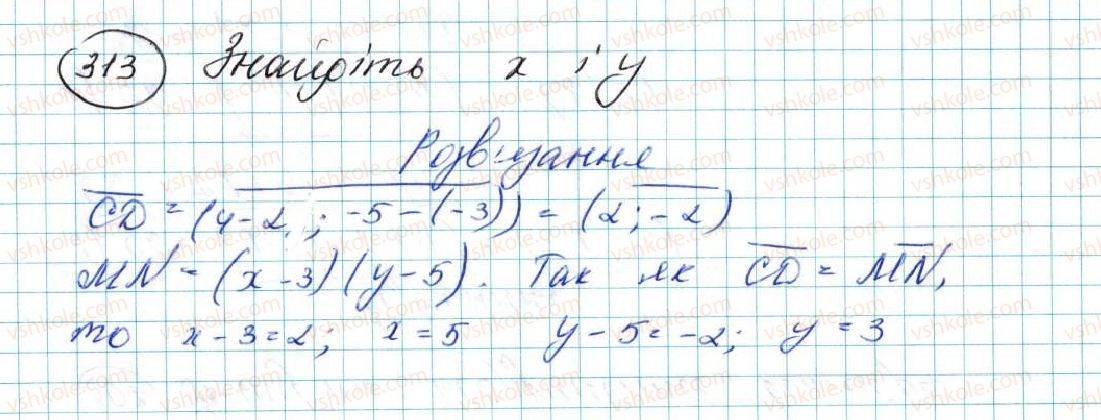 313 Знайдіть x і y
Розв'язання
C̅D̅ = (4-2; -5-(-3)) = (2; -2)
MN = (x-3)(y-5). Так як C̅D̅ = M̅N̅,
то x-3=2; x=5 y-5=-2; y=3